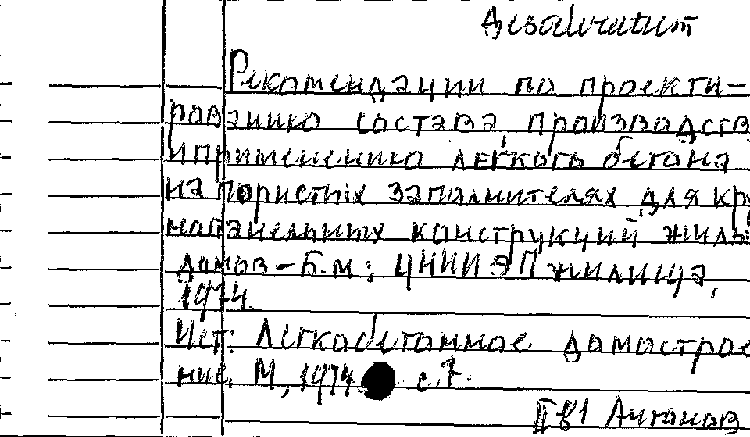 Desideratum
Рекомендации по проекти-
рованию состава, производств
и применению легкого бетона
на пористых заполнителях для кру
нопанельных конструкций жилы
домов – Б.м: ЦНИИЭП жилища,
1974.
Ист: Легкобетонное домострое
ние. М, 1974 с.7.